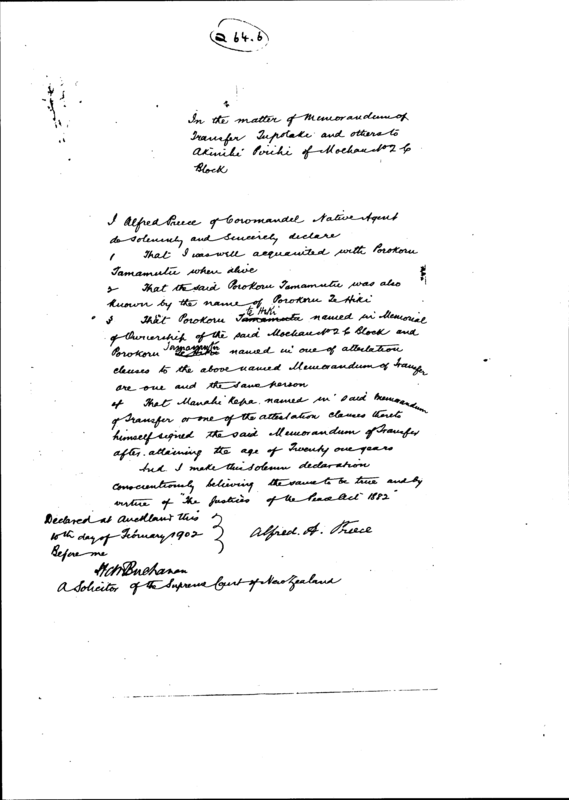 264.6
In the matter of Memorandum of
Transfer Tupotaki and others to
Akinihi Pirihi of Moehau No 2 C
Block
I Alfred Preece of Coromandel Native Agent
do solemnly and sincerely declare
1 That I was well acquainted with Porokoru
Tamamutu when alive
2 That the said Porokoru Tamamutu was also
known by the name of Porokoru Te Hiki
Te Hiki
3 That Porokoru named in Memorial
of Ownership of the said Moehau No 2 C Block and
Porokoru Tamamutu named in one of attestation
clauses to the above named Memorandum of Transfer
are one and the same person
4 That Manahi Kepa named in said Memorandum
of Transfer or one of the attestation clauses thereto
himself signed the said Memorandum of Transfer
after attaining the age of Twenty one years
And I make this solemn declaration
conscientiously believing the same to be true and by
virtue of "The Justices of the Peace Act 1882"
Declared at Auckland this
10th day of February 1902
Before me
Alfred. A. Preece
Buchanan
A Solicitor of the Supreme Court of New Zealand